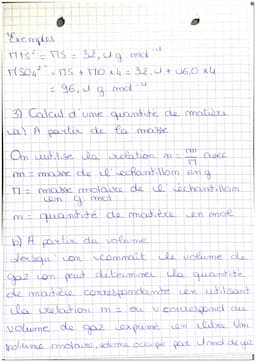 Exemples
MS²⁻ = MS = 32,1 g mol⁻¹
MSO4²⁻ = MS + MO x 4 = 32,1 + 16,0 x 4
= 96,1 g mol⁻¹
3) Calcul d'une quantité de matière
a) A partir de la masse
On utilise la relation n = m/M avec
m = masse de l'échantillon en g
M = masse molaire de l'échantillon
en g. mol
n = quantité de matière en mol
b) A partir du volume
Lorsqu'on connait le volume de
gaz on peut déterminer la quantité
de matière correspondante en utilisant
la relation n = où v correspond au
volume de gaz exprimé en litre Vm
volume molaire, volume occupé par 1 mol de gaz